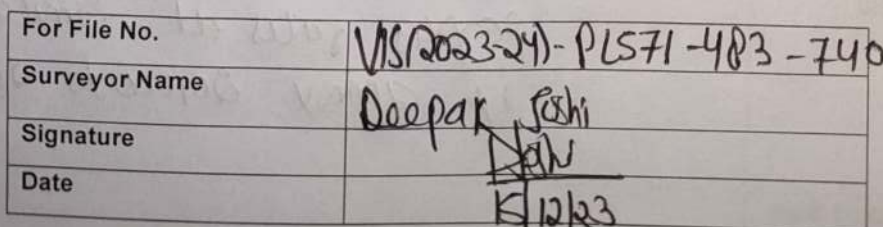 For File No. VIS(2023-24)-PL571-483-740
Surveyor Name Deepak Joshi
Signature
Date 15/12/23